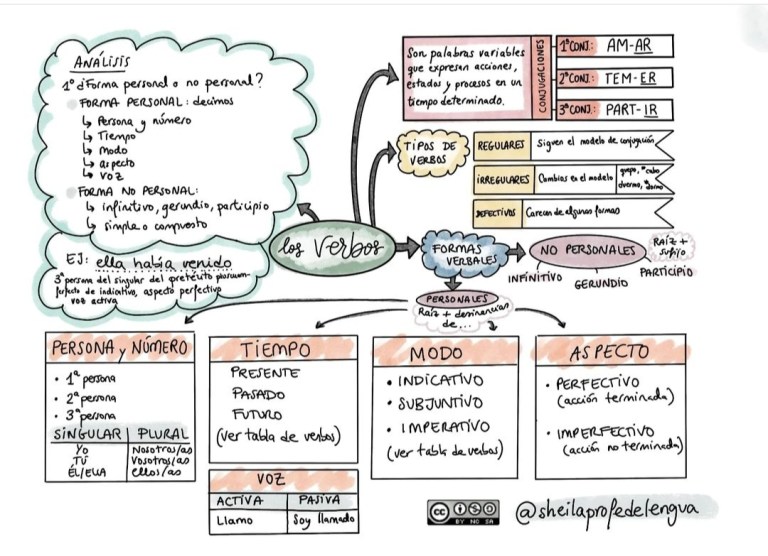 ANÁLISIS
1º ¿Forma personal o no personal?
FORMA PERSONAL: decimos
↳ Persona y número
↳ Tiempo
↳ Modo
↳ aspecto
↳ voz
FORMA NO PERSONAL:
↳ infinitivo, gerundio, participio
↳ simple o compuesto
EJ: ella había venido
3ª persona del singular del pretérito pluscuam-
perfecto de indicativo, aspecto perfectivo
voz activa
Son palabras variables
que expresan acciones,
estados y procesos en un
tiempo determinado.
CONJUGACIONES
1ª CONJ.: AM-AR
2ª CONJ.: TEM-ER
3ª CONJ.: PART-IR
TIPOS DE
VERBOS
REGULARES Siguen el modelo de conjugación
IRREGULARES Cambios en el modelo
DEFECTIVOS Carecen de algunas formas
los verbos
FORMAS
VERBALES
NO PERSONALES
RAÍZ +
sufijo
INFINITIVO
GERUNDIO
PARTICIPIO
PERSONALES
Raíz + desinencias
de...
PERSONA y NÚMERO
• 1ª persona
• 2ª persona
• 3ª persona
SINGULAR PLURAL
Yo Nosotros/as
TÚ Vosotros/as
ÉL/ELLA ellos/as
TIEMPO
PRESENTE
PASADO
FUTURO
(ver tabla de verbos)
VOZ
ACTIVA PASIVA
Llamo Soy llamado
MODO
• INDICATIVO
• SUBJUNTIVO
• IMPERATIVO
(ver tabla de verbos)
ASPECTO
• PERFECTIVO
(acción terminada)
• IMPERFECTIVO
(acción no terminada)
cc
BY NC SA
@sheilaprofedelengua